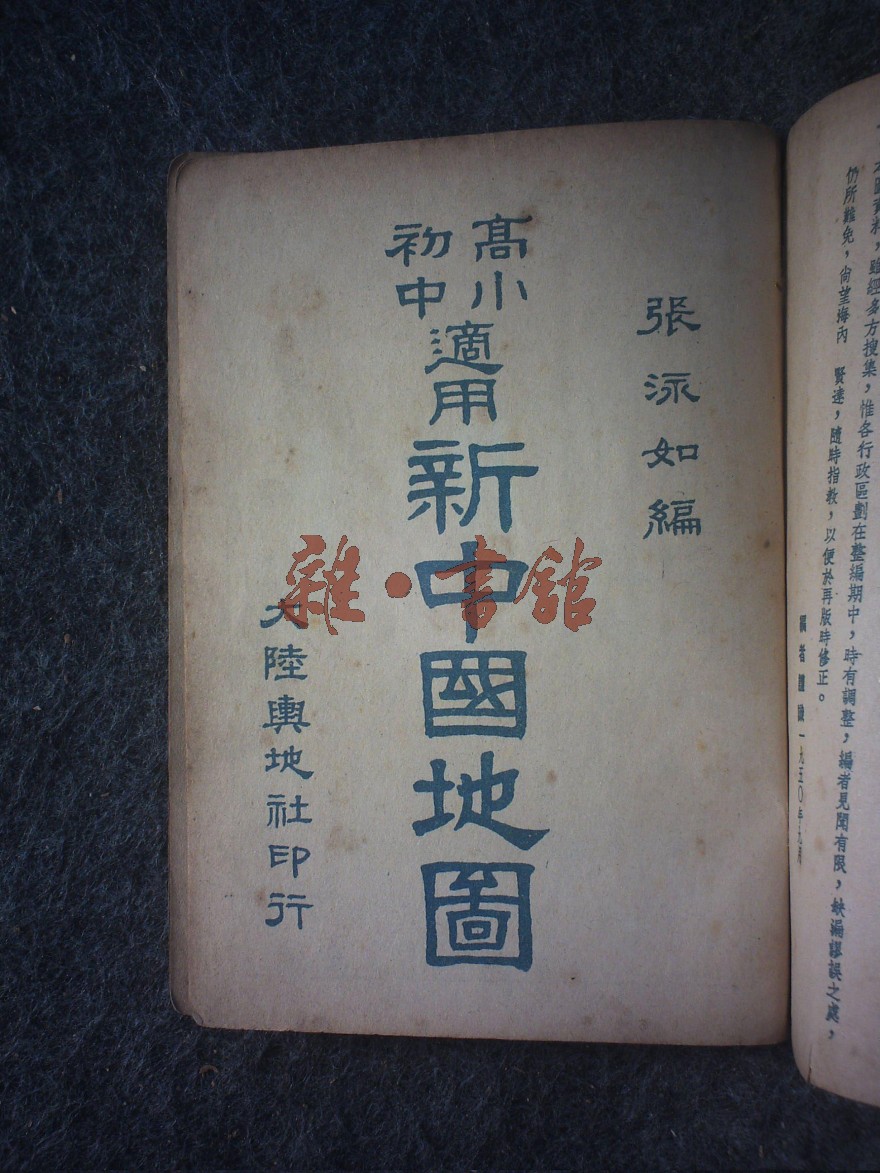 本圖資料，雖經多方搜集，惟各行政區劃在整編期中，時有調整，編者見聞有限，缺漏謬誤之處，
仍所難免，尚望海內　賢達，隨時指教，以便於再版時修正。
編者謹識一九五〇年九月
張泳如編
高小
初中
適用新中國地圖
大陸輿地社印行
雜·書館